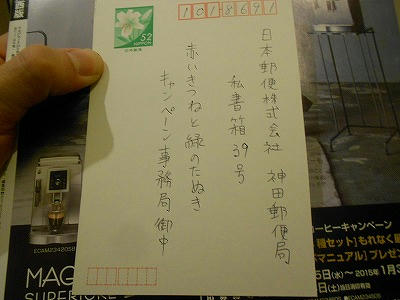 1018691
52
NIPPON
日本郵便株式会社 神田郵便局
私書箱39号
赤いきつねと緑のたぬき
キャンペーン事務局御中
西版
ECAM23420SB
MAG
SUPERIORE
ECAM23420SB
コーヒーキャンペーン
種セット】もれなく
マニュアル】プレゼン
5日(水)〜2015年1月3
日(土)当日消印有効